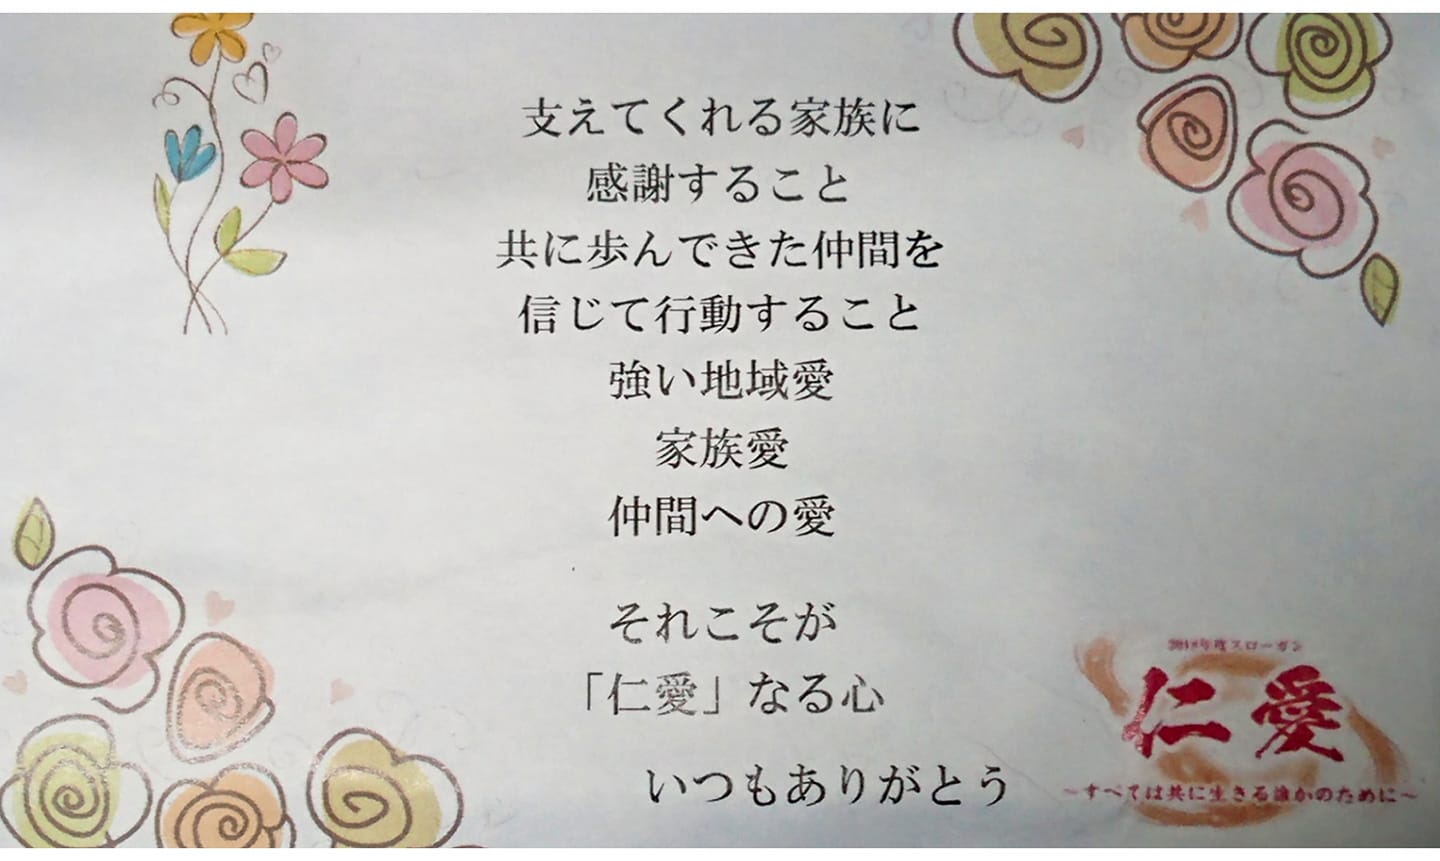 支えてくれる家族に
感謝すること
共に歩んできた仲間を
信じて行動すること
強い地域愛
家族愛
仲間への愛
それこそが
「仁愛」なる心
いつもありがとう
2018年度スローガン
仁愛
～すべては共に生きる誰かのために～